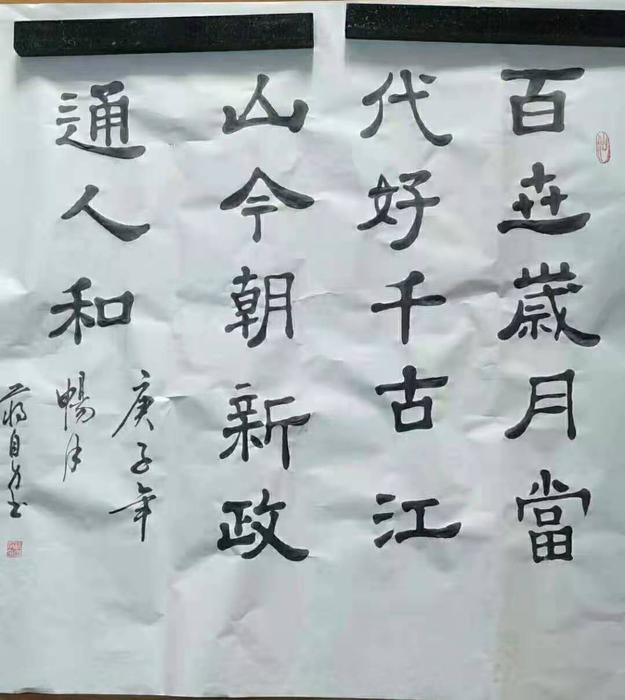 百世歲月當
代好千古江
山今朝新政
通人和
庚子年
暢月
蔣自力书